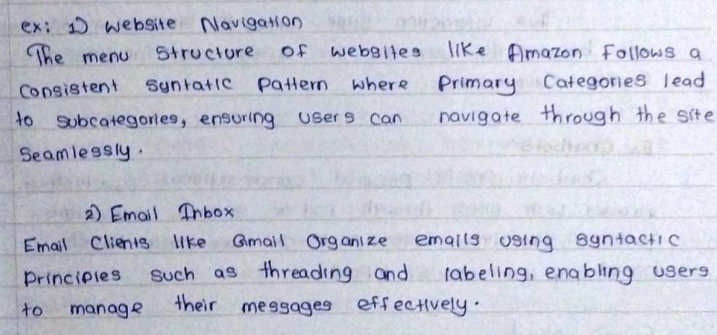 ex: 1) Website Navigation
The menu structure of websites like Amazon follows a
consistent syntatic pattern where primary categories lead
to subcategories, ensuring users can navigate through the site
seamlessly.
2) Email Inbox
Email clients like Gmail organize emails using syntactic
principles such as threading and labeling, enabling users
to manage their messages effectively.